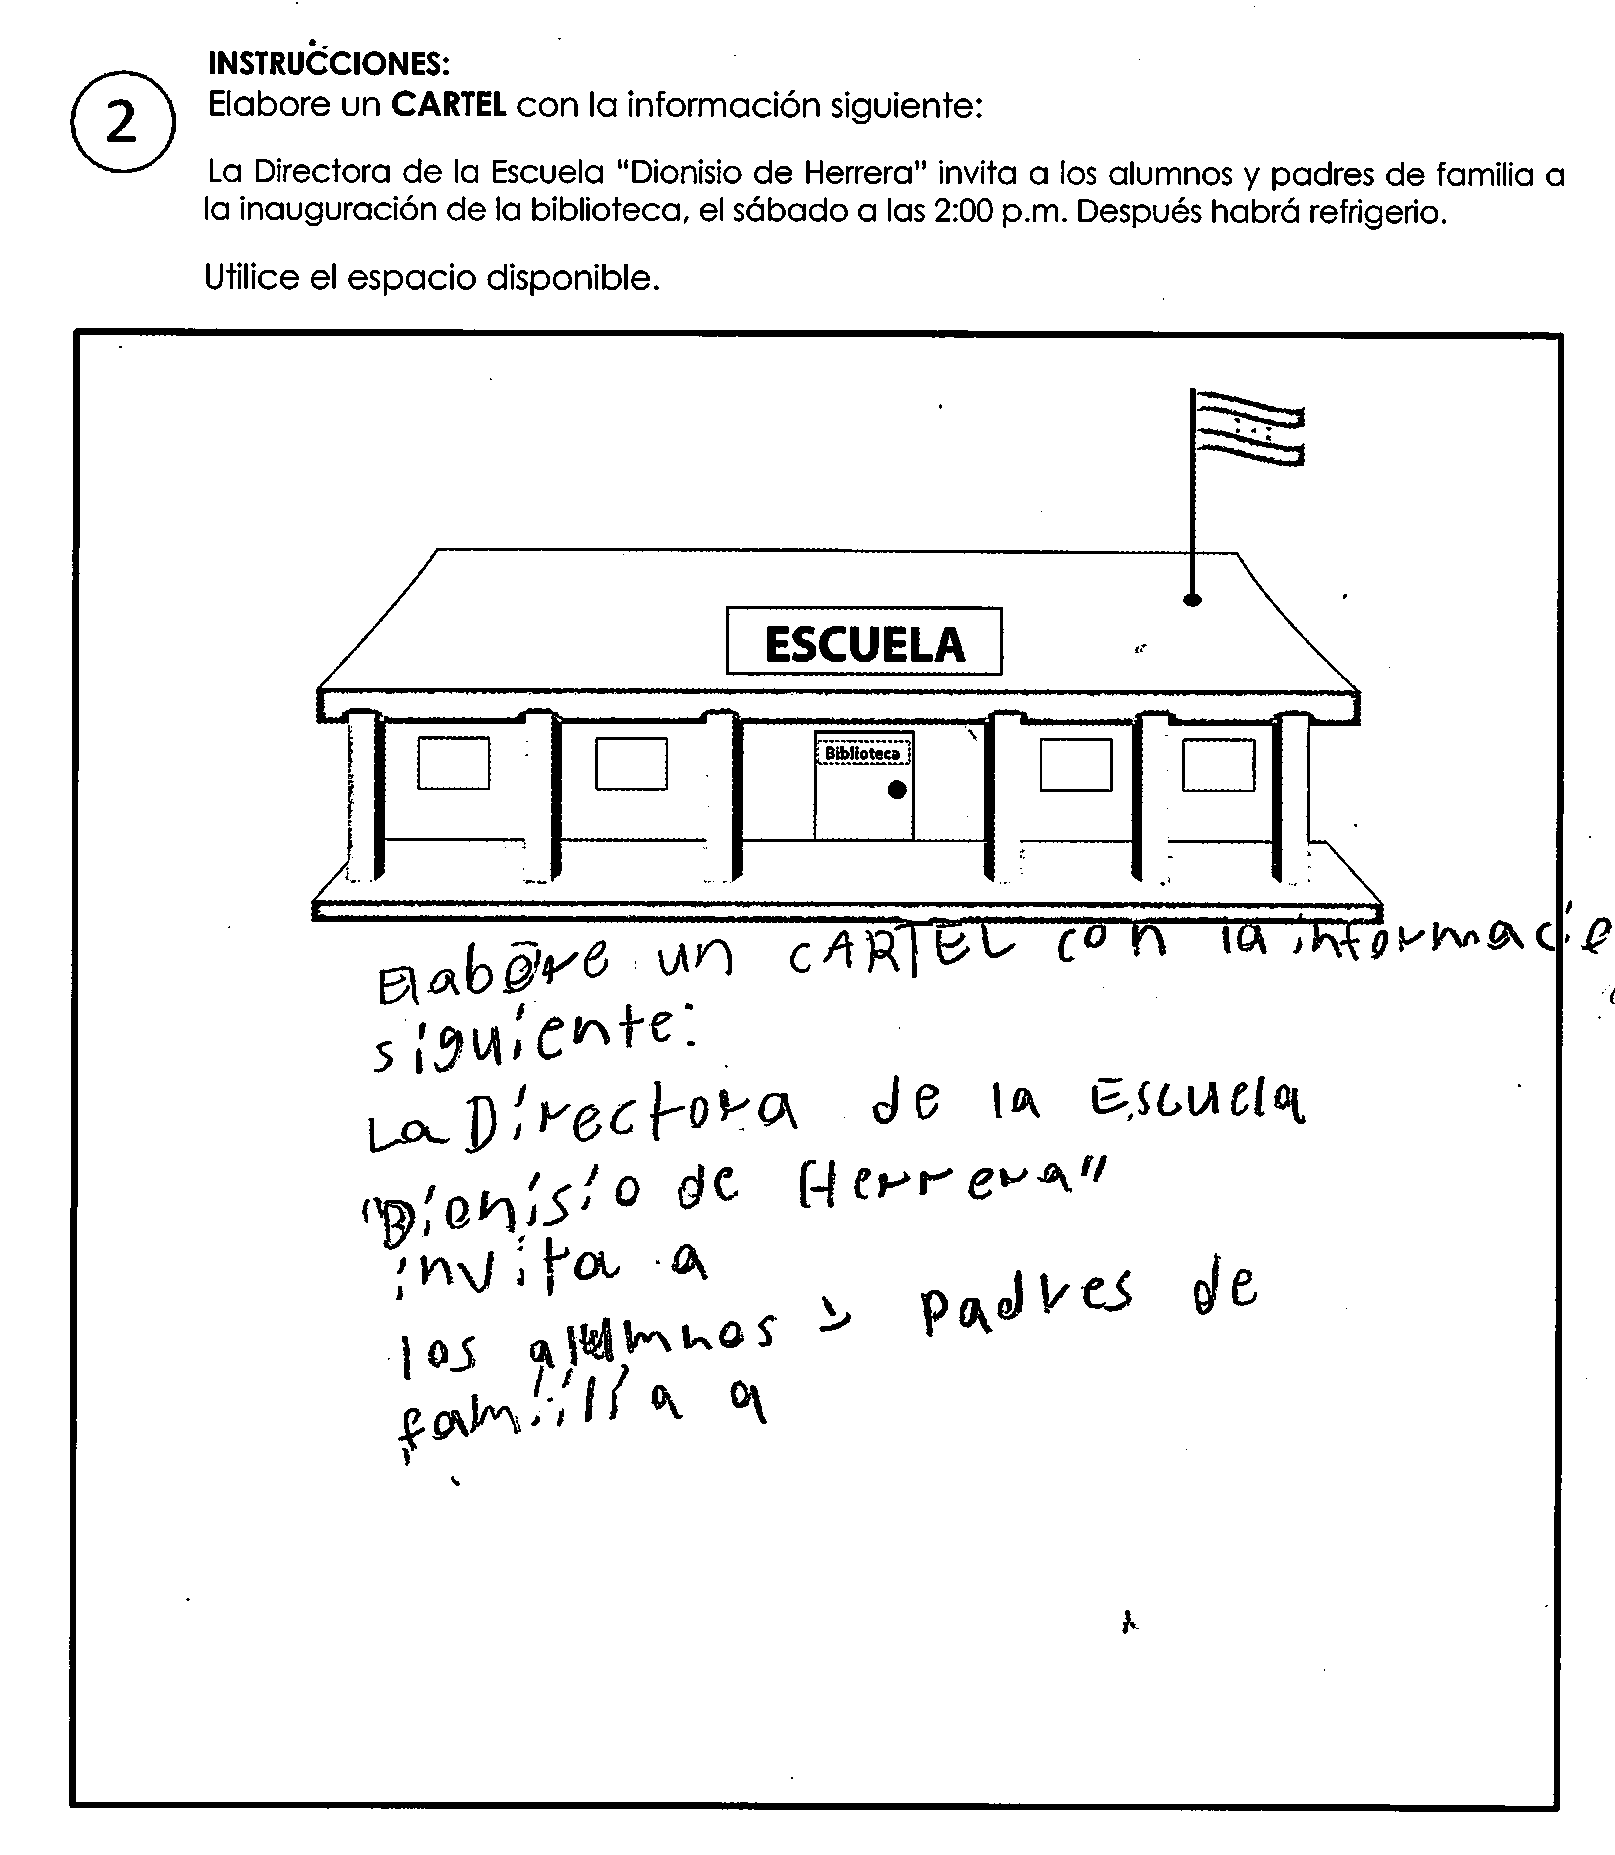 INSTRUCCIONES:
2
Elabore un CARTEL con la información siguiente:
La Directora de la Escuela "Dionisio de Herrera" invita a los alumnos y padres de familia a
la inauguración de la biblioteca, el sábado a las 2:00 p.m. Después habrá refrigerio.
Utilice el espacio disponible.
ESCUELA
Biblioteca
Elabore un CARTEL con la informacie
siguiente:
La Directora de la Escuela
"Dionisio de Herrera"
invita a
los alumnos y padres de
familia a